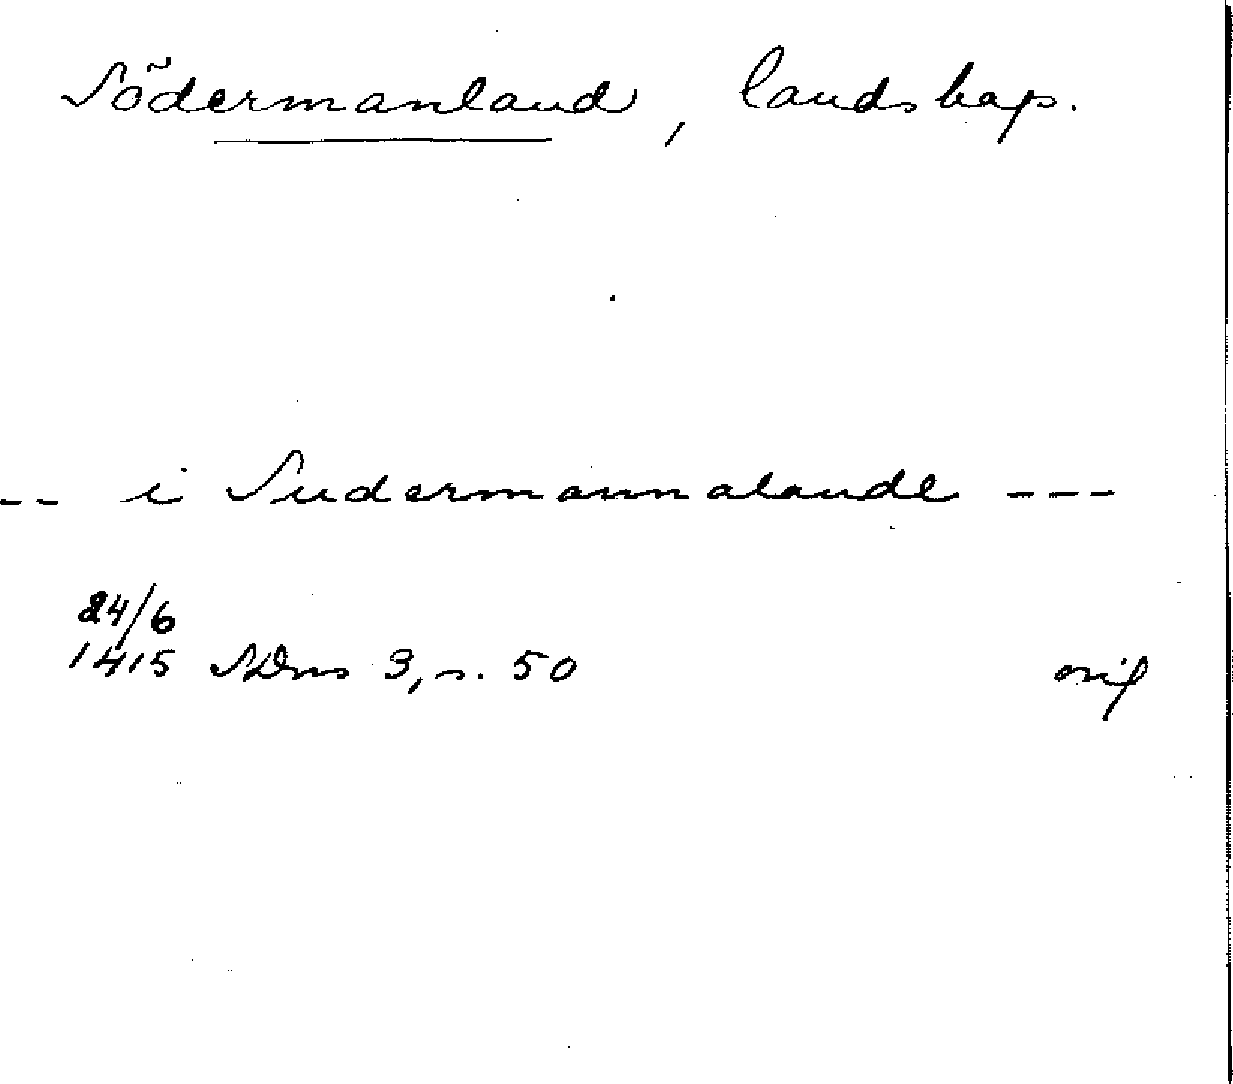 Södermanland, landskap.
-- i Sudermannalande ---
24/6
1415 SDns 3, s. 50 orig